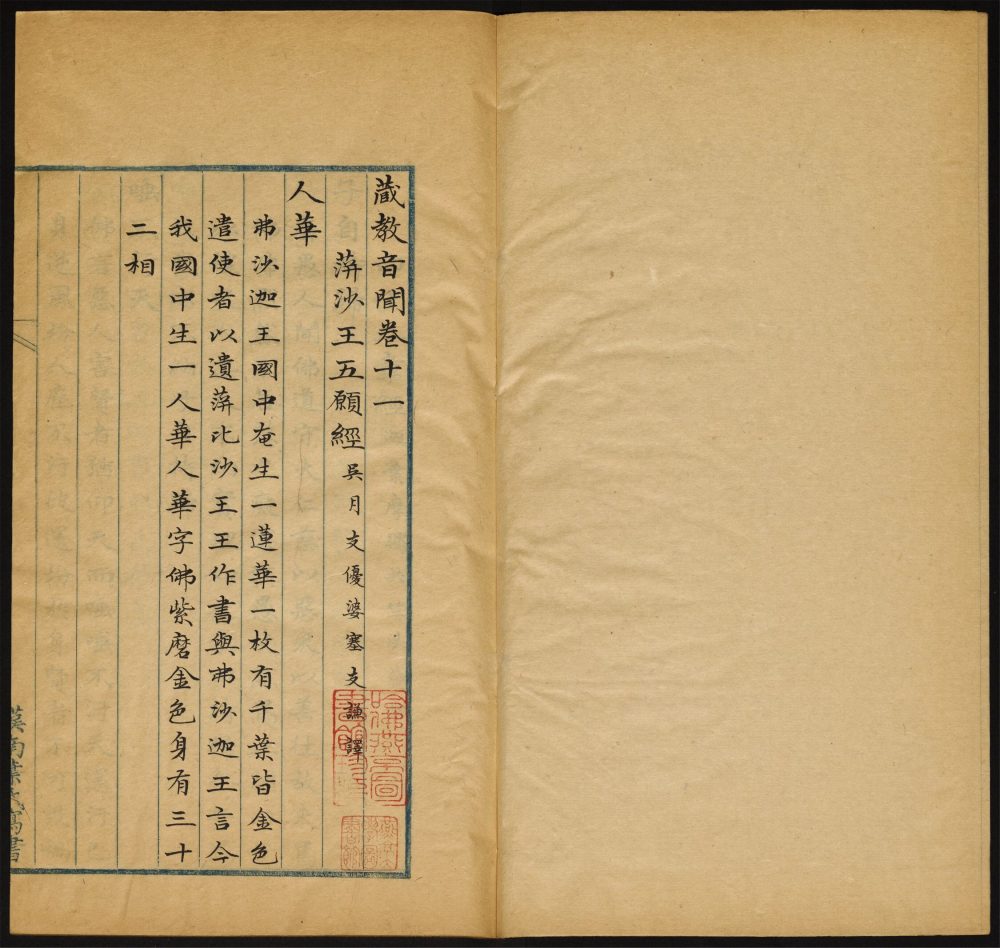 藏教音聞卷十一
蓱沙王五願經 吳月支優婆塞支謙譯
人華
弗沙迦王國中奄生一蓮華一枚有千葉皆金色
遣使者以遺蓱比沙王王作書與弗沙迦王言今
我國中生一人華人華字佛紫磨金色身有三十
二相
漢陽葉氏寫書
哈佛燕京圖書館